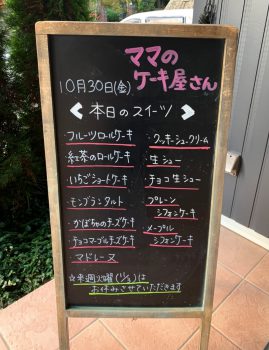 ママの
ケーキ屋さん
10月30日(金)
< 本日のスイーツ >
・フルーツロールケーキ
・紅茶のロールケーキ
・いちごショートケーキ
・モンブランタルト
・かぼちゃのチーズケーキ
・チョコマーブルチーズケーキ
・マドレーヌ
・クッキーシュークリーム
・生シュー
・チョコ生シュー
・プレーン
シフォンケーキ
・メープル
シフォンケーキ
☆来週火曜(11/3)は
お休みさせていただきます